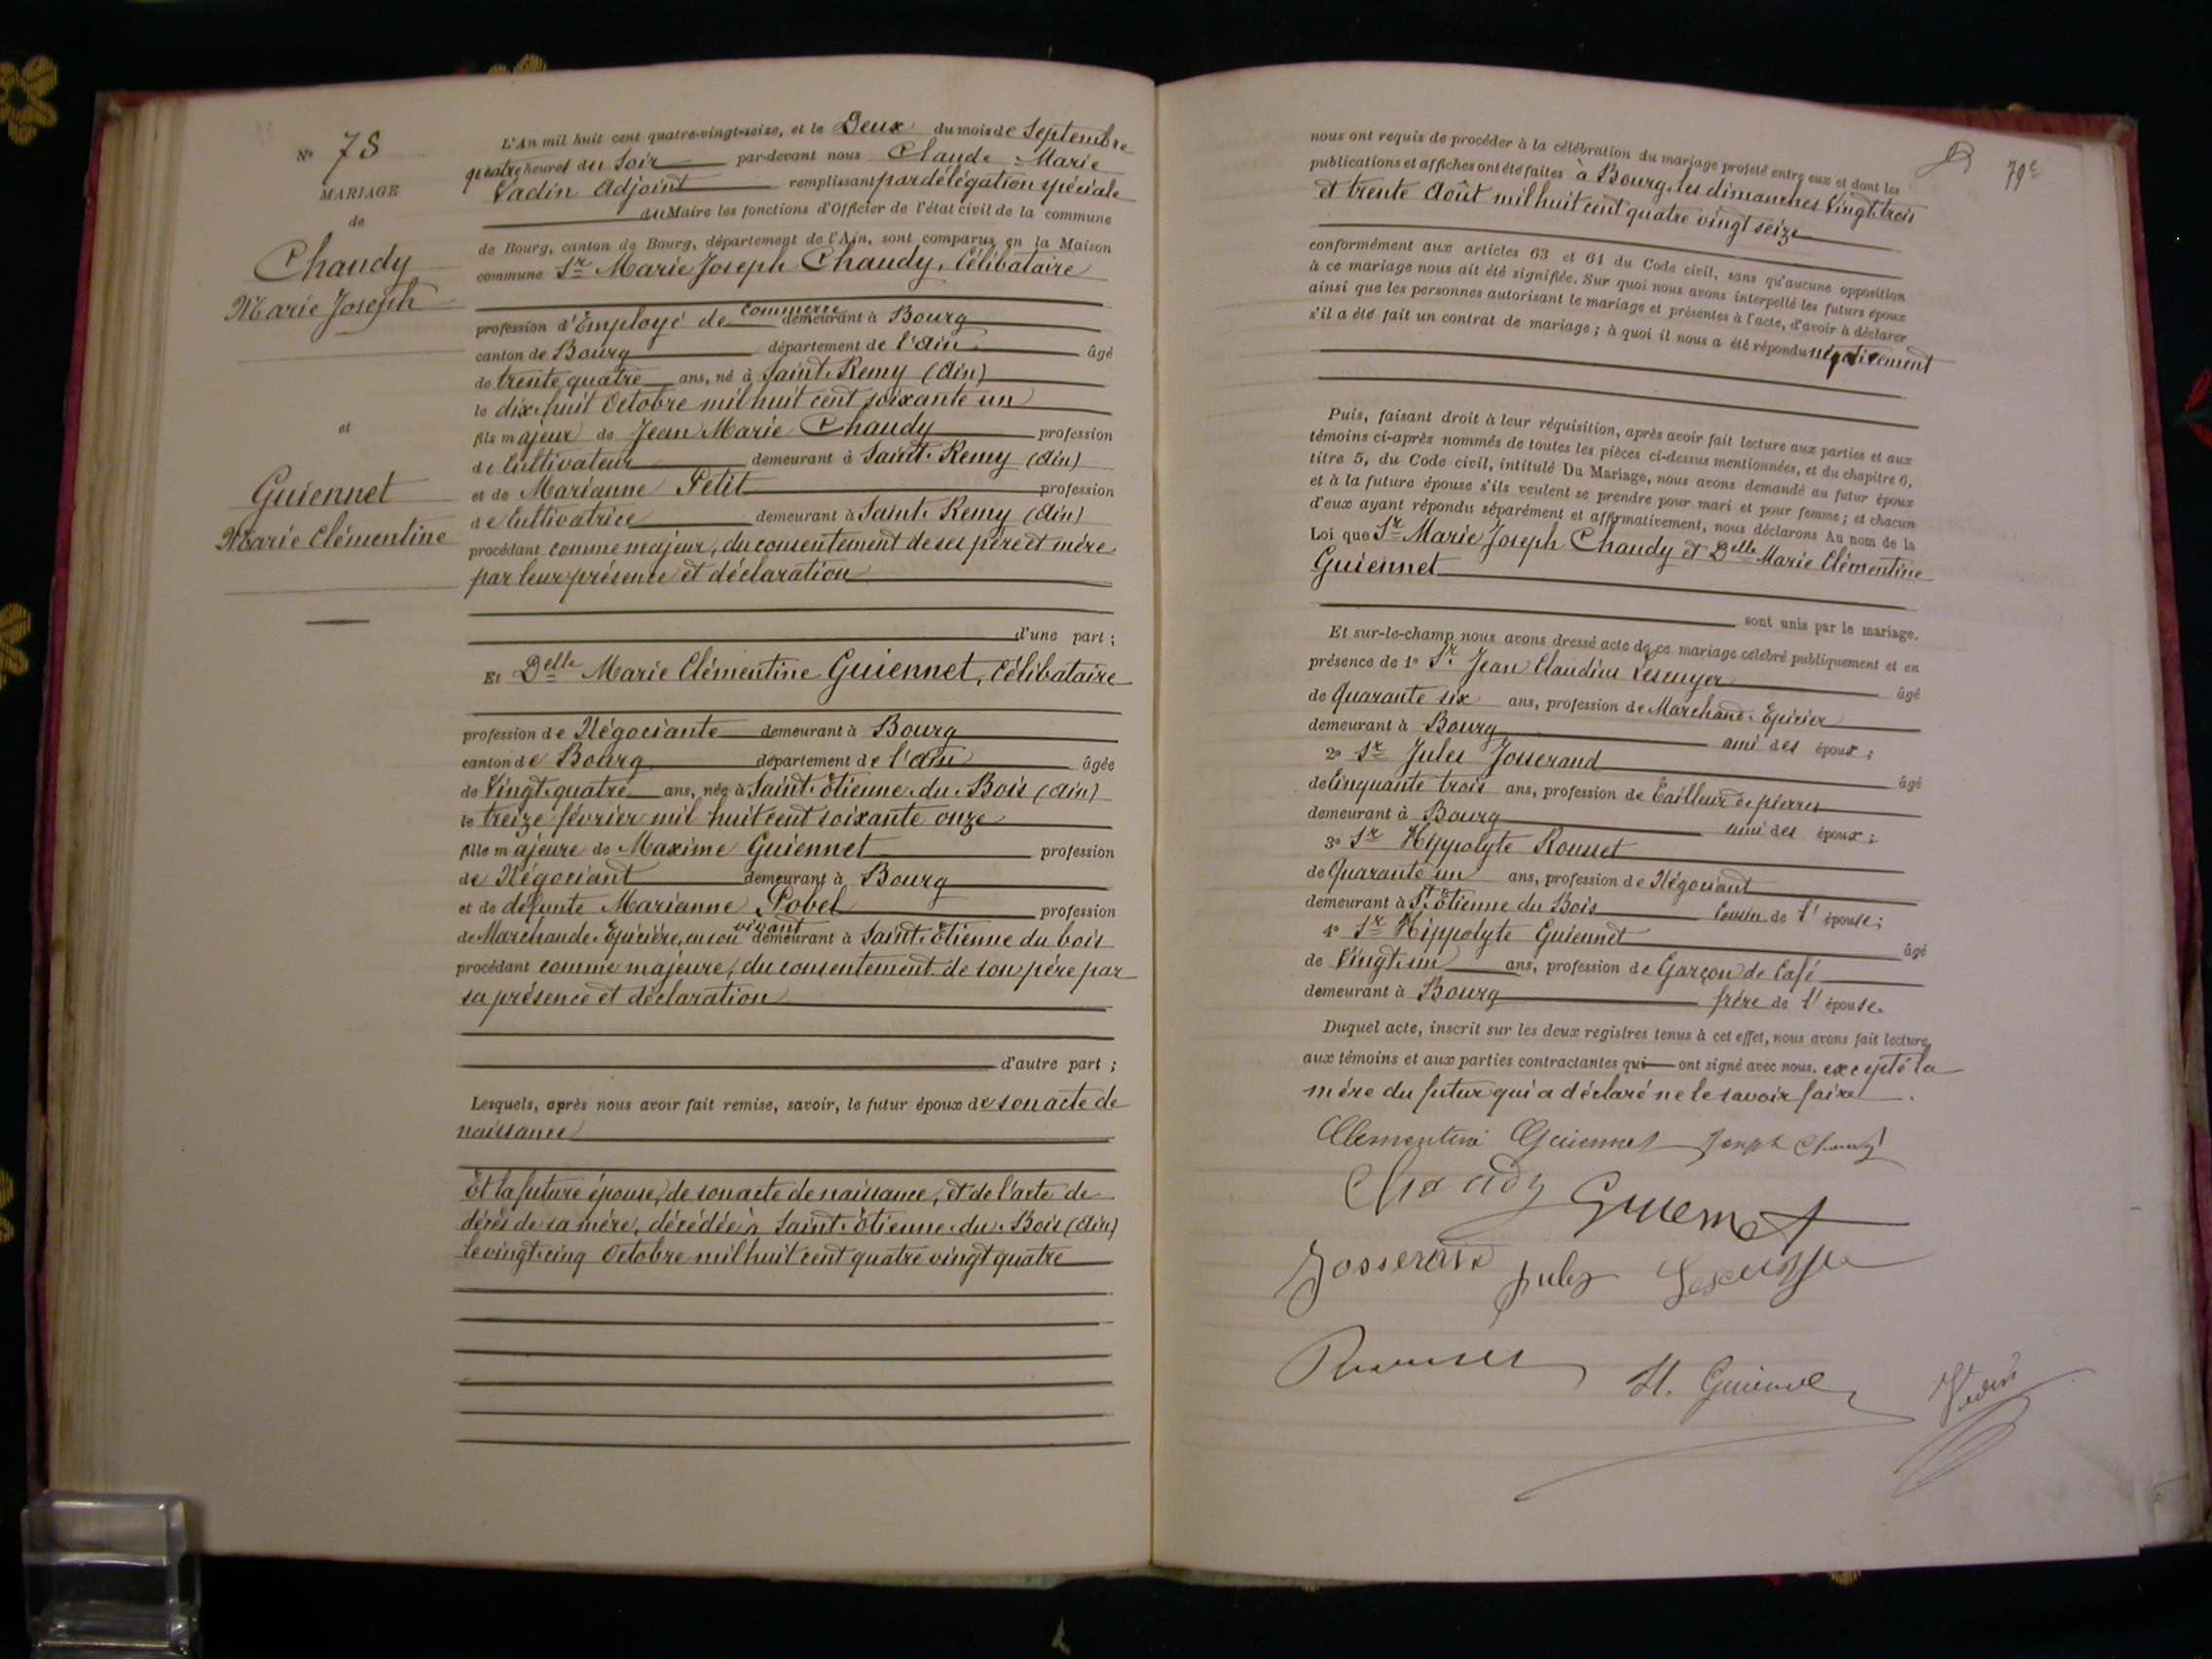 N° 78
MARIAGE
de
Chaudy
Marie Joseph
et
Guiennet
Marie Clémentine
L'An mil huit cent quatre-vingt-seize, et le Deux du mois de Septembre
quatre heures du Soir par-devant nous Claude Marie
Vadin Adjoint remplissant par délégation spéciale
du Maire les fonctions d'Officier de l'état civil de la commune
de Bourg, canton de Bourg, département de l'Ain, sont comparus en la Maison
commune Sr Marie Joseph Chaudy, Célibataire
profession d'Employé de commerce demeurant à Bourg
canton de Bourg département de l'Ain âgé
de trente quatre ans, né à Saint-Remy (Ain)
le dix-huit Octobre mil huit cent soixante un
fils majeur de Jean Marie Chaudy profession
de Cultivateur demeurant à Saint-Remy (Ain)
et de Marianne Petit profession
de Cultivatrice demeurant à Saint-Remy (Ain)
procédant comme majeur, du consentement de ses père et mère
par leur présence et déclaration
d'une part ;
Et Delle Marie Clémentine Guiennet, Célibataire
profession de Négociante demeurant à Bourg
canton de Bourg département de l'Ain âgée
de Vingt-quatre ans, née à Saint-Etienne-du-Bois (Ain)
le treize février mil huit cent soixante onze
fille majeure de Maxime Guiennet profession
de Négociant demeurant à Bourg
et de defunte Marianne Pobel profession
de Marchande-Epicière, en son vivant demeurant à Saint-Etienne du bois
procédant comme majeure, du consentement de son père par
sa présence et déclaration
d'autre part ;
Lesquels, après nous avoir fait remise, savoir, le futur époux de son acte de
naissance
Et la future épouse, de son acte de naissance, et de l'acte de
décès de sa mère, décédée à Saint-Etienne-du-Bois (Ain)
le vingt-cinq Octobre mil huit cent quatre vingt quatre
79e
nous ont requis de procéder à la célébration du mariage projeté entre eux et dont les
publications et affiches ont été faites à Bourg, les dimanches Vingt-trois
et trente Août mil huit cent quatre vingt seize
conformément aux articles 63 et 64 du Code civil, sans qu'aucune opposition
à ce mariage nous ait été signifiée. Sur quoi nous avons interpellé les futurs époux
ainsi que les personnes autorisant le mariage et présentes à l'acte, d'avoir à déclarer
s'il a été fait un contrat de mariage ; à quoi il nous a été répondu négativement
Puis, faisant droit à leur réquisition, après avoir fait lecture aux parties et aux
témoins ci-après nommés de toutes les pièces ci-dessus mentionnées, et du chapitre 6,
titre 5, du Code civil, intitulé Du Mariage, nous avons demandé au futur époux
et à la future épouse s'ils veulent se prendre pour mari et pour femme ; et chacun
d'eux ayant répondu séparément et affirmativement, nous déclarons Au nom de la
Loi que Sr Marie Joseph Chaudy et Delle Marie Clémentine
Guiennet
sont unis par le mariage.
Et sur-le-champ nous avons dressé acte de ce mariage célébré publiquement et en
présence de 1° Sr Jean Claudius âgé
de Quarante six ans, profession de Marchand-Epicier
demeurant à Bourg ami des époux ;
2° Sr Jules Josserand âgé
de Cinquante trois ans, profession de Tailleur de pierres
demeurant à Bourg ami des époux ;
3° Sr Hippolyte Rousset
de Quarante un ans, profession de Négociant
demeurant à St. Etienne du Bois Cousin de l'épouse ;
4° Sr Hippolyte Guiennet âgé
de Vingt-un ans, profession de Garçon de Café
demeurant à Bourg frère de l'épouse.
Duquel acte, inscrit sur les deux registres tenus à cet effet, nous avons fait lecture
aux témoins et aux parties contractantes qui ont signé avec nous. excepté la
mère du futur qui a déclaré ne le savoir faire.
Clementine Guiennet Joseph Chaudy
Chaudy Guiennet
Josserand Jules
Rousset H. Guiennet Vadin